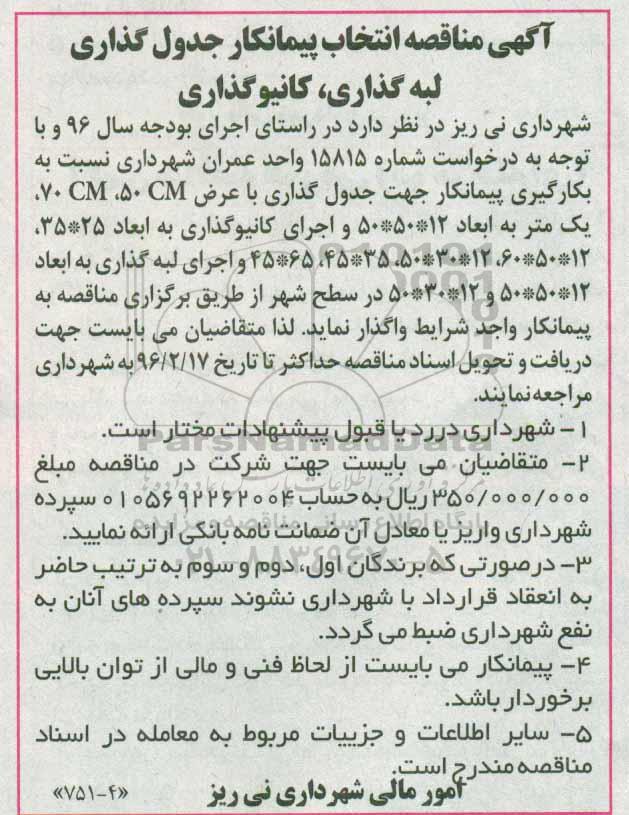 آگهی مناقصه انتخاب پیمانکار جدول گذاری
لبه گذاری، کانیوگذاری
شهرداری نی ریز در نظر دارد در راستای اجرای بودجه سال ۹۶ و با
توجه به درخواست شماره ۱۵۸۱۵ واحد عمران شهرداری نسبت به
بکارگیری پیمانکار جهت جدول گذاری با عرض ۵۰ CM، ۷۰ CM،
یک متر به ابعاد ۱۲*۵۰*۵۰ و اجرای کانیوگذاری به ابعاد ۲۵*۳۵،
۱۲*۵۰*۶۰، ۱۲*۳۰*۵۰، ۳۵*۴۵، ۶۵*۴۵ و اجرای لبه گذاری به ابعاد
۱۲*۵۰*۵۰ و ۱۲*۳۰*۵۰ در سطح شهر از طریق برگزاری مناقصه به
پیمانکار واجد شرایط واگذار نماید. لذا متقاضیان می بایست جهت
دریافت و تحویل اسناد مناقصه حداکثر تا تاریخ ۹۶/۲/۱۷ به شهرداری
مراجعه نمایند.
۱- شهرداری در رد یا قبول پیشنهادات مختار است.
۲- متقاضیان می بایست جهت شرکت در مناقصه مبلغ
۳۵۰/۰۰۰/۰۰۰ ریال به حساب ۰۱۰۵۶۹۲۲۶۲۰۰۴ سپرده
شهرداری واریز یا معادل آن ضمانت نامه بانکی ارائه نمایید.
۳- درصورتی که برندگان اول، دوم و سوم به ترتیب حاضر
به انعقاد قرارداد با شهرداری نشوند سپرده های آنان به
نفع شهرداری ضبط می گردد.
۴- پیمانکار می بایست از لحاظ فنی و مالی از توان بالایی
برخوردار باشد.
۵- سایر اطلاعات و جزییات مربوط به معامله در اسناد
مناقصه مندرج است.
امور مالی شهرداری نی ریز
«۷۵۱-۴»
ParsNamadData